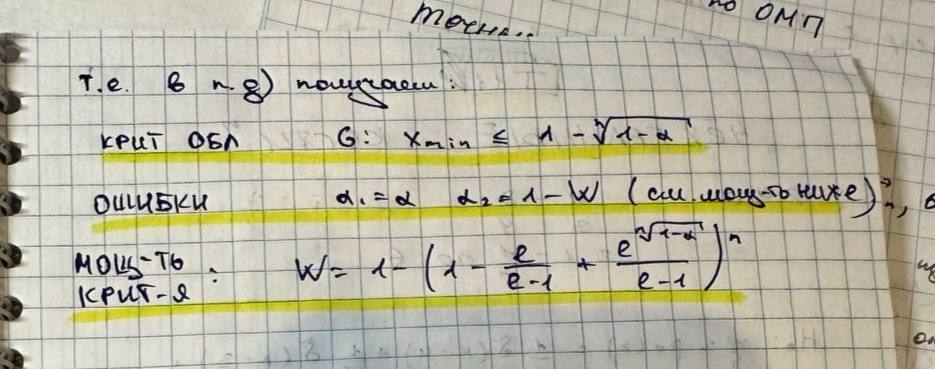 точн..
по ОМП
т.е. в п. д) получаем:
КРИТ ОБЛ G: Xmin ≤ 1 - ⁿ√(1-α)
ОШИБКИ α₁ = α α₂ = 1 - W (см. мощ-ть ниже)
МОЩ-ТЬ КРИТ-Я: W = 1 - (1 - e/(e-1) + e^(ⁿ√(1-α))/(e-1))ⁿ